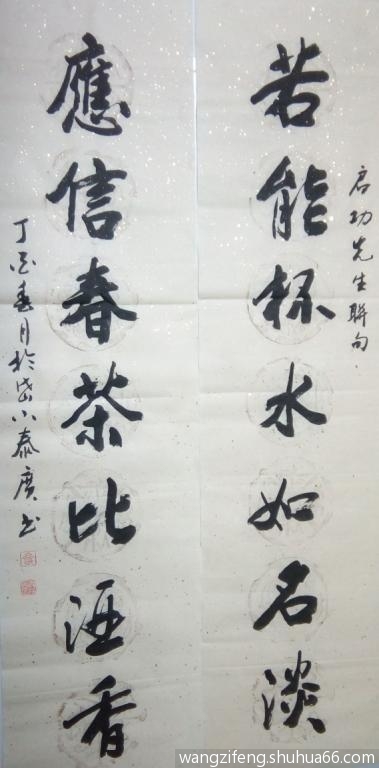 启功先生聯句
若能杯水如名淡
應信春茶比酒香
丁酉春月於岱泰廣书
wangzifeng.shuhua66.com